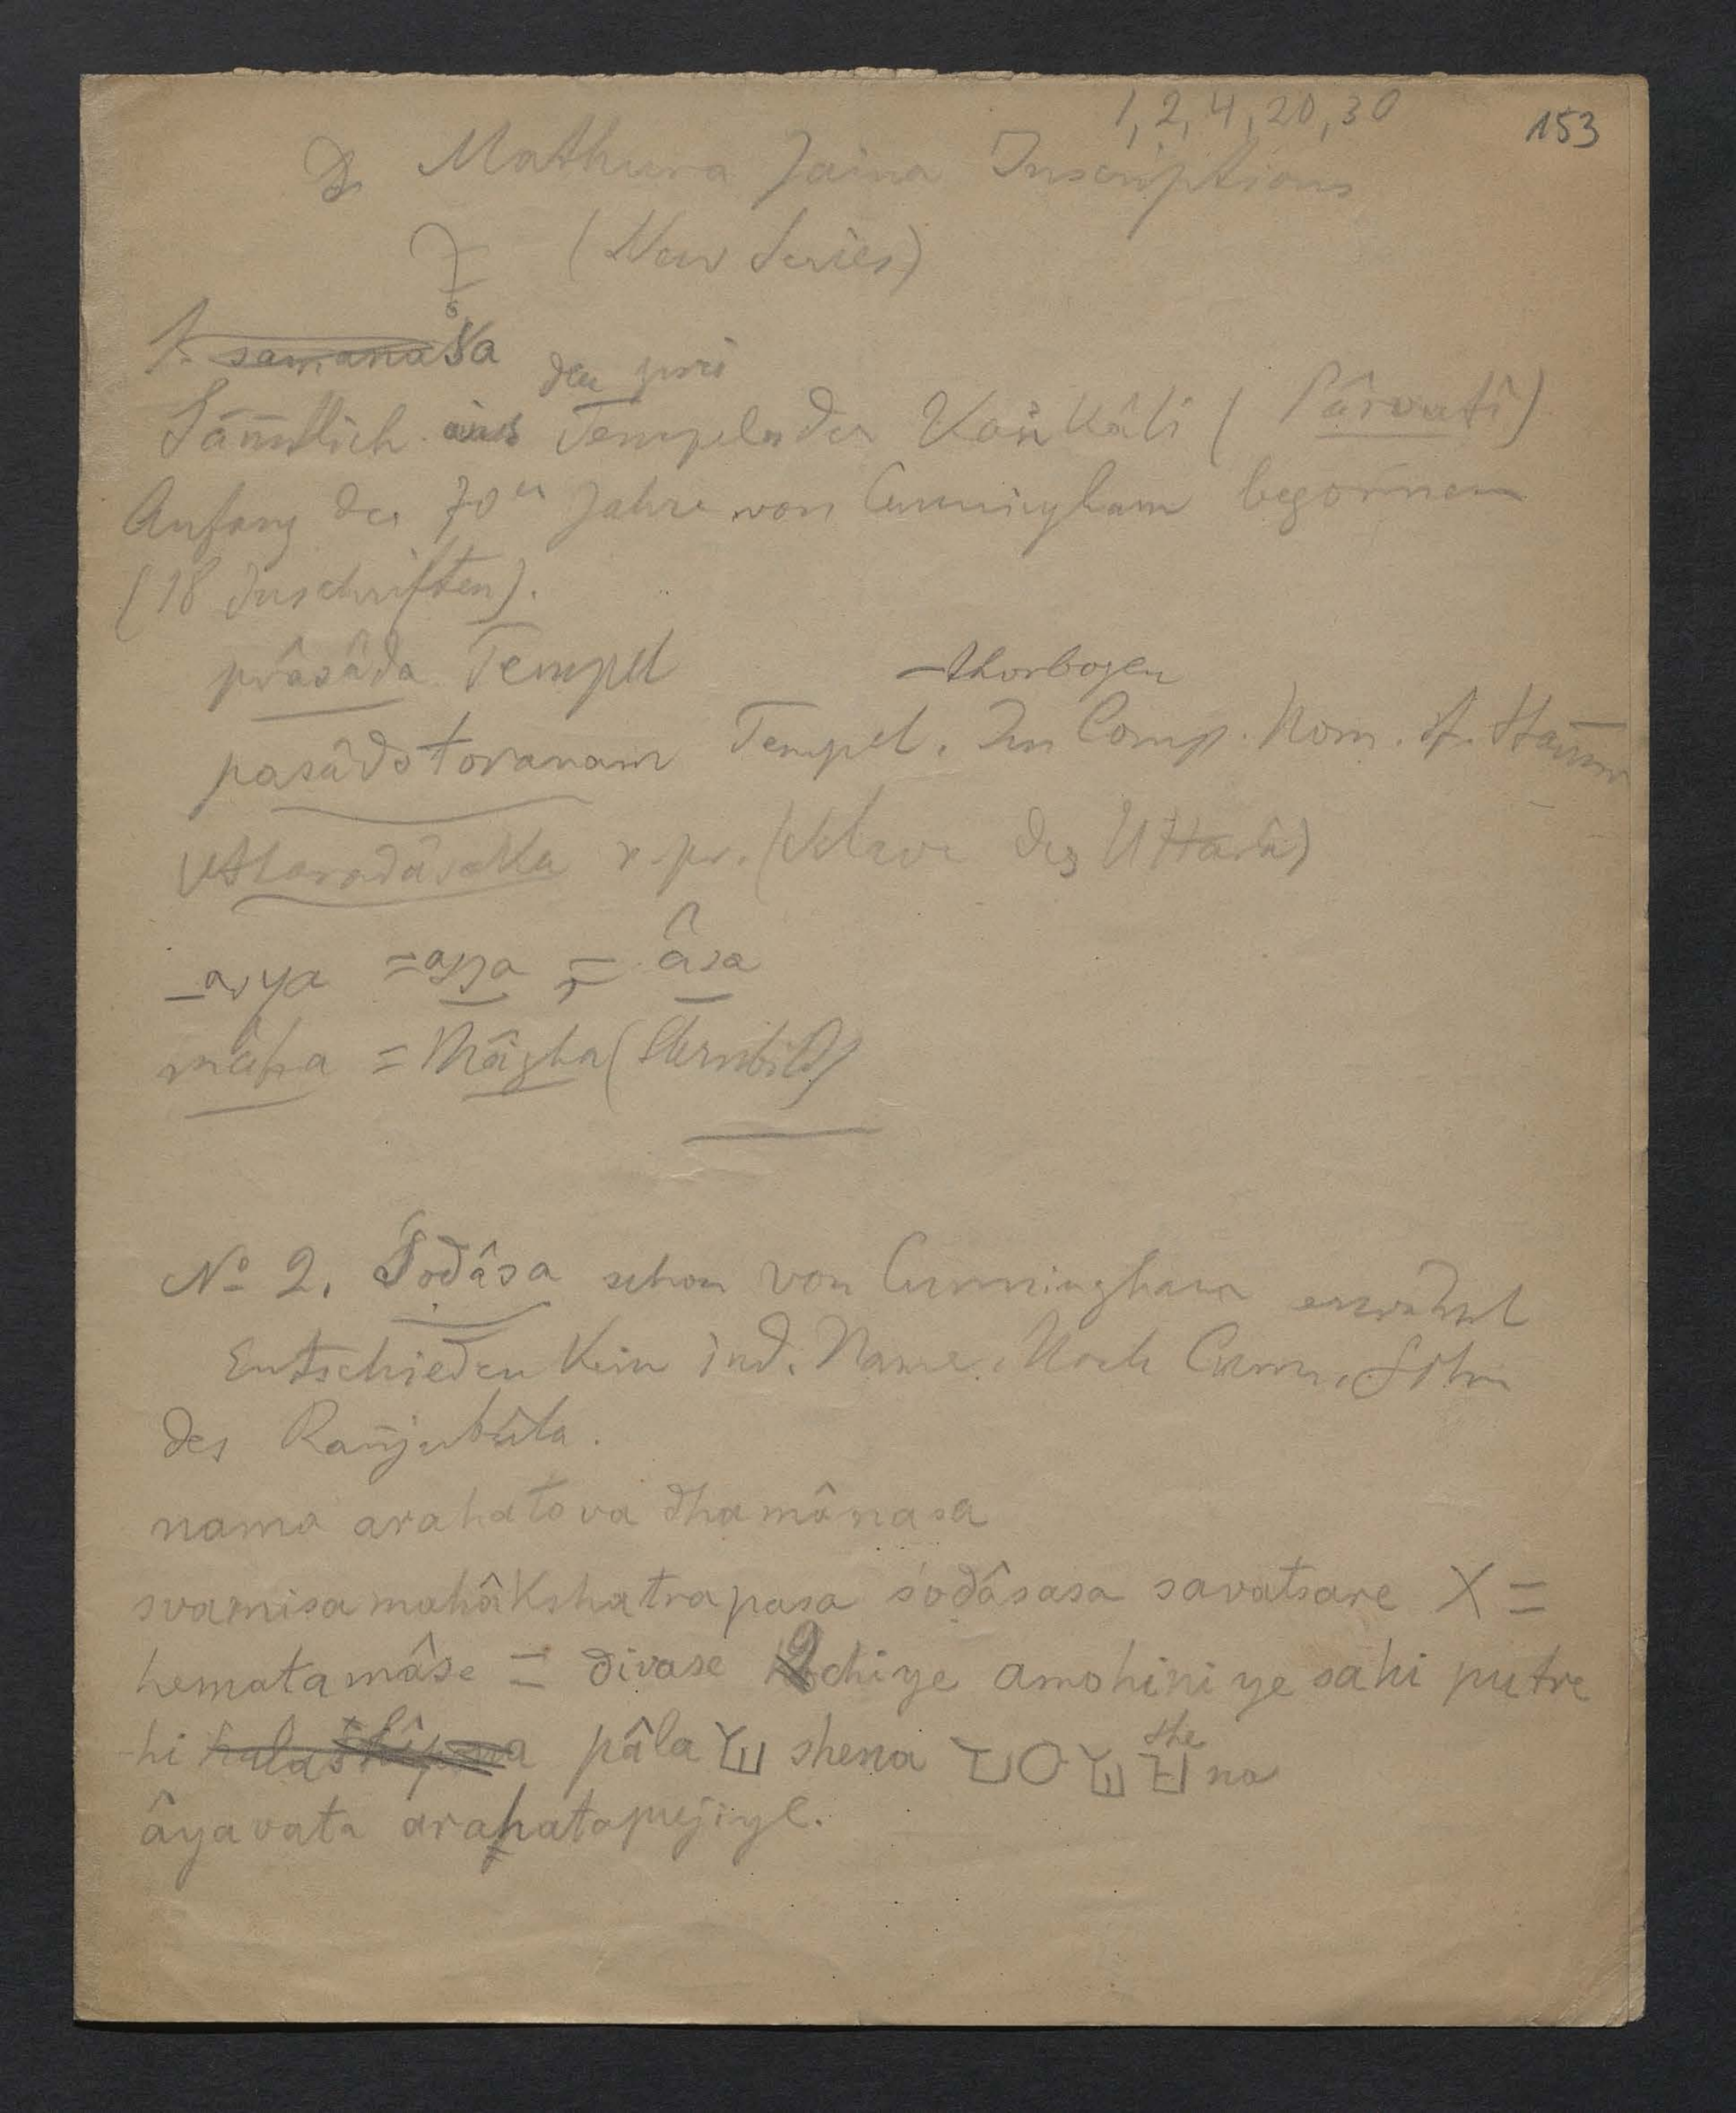 1, 2, 4, 20, 30
153
Mathura Jaina Inscriptions
(New Series)
1. samanasa
den zwei
Sām̄tlich aus Tempeln der Kaṅkâli (Pârvatî)
Anfang der 70er Jahre von Cunningham begoñnen
(18 Inschriften).
prâsâda Tempel
-thorbogen
pasâdotoranam Tempel. Im Comp. Nom. st. Stam̄m
Uttaradâsaka n. pr. (Sklave der Uttarâ)
-asya = assa = âsa
mâha = Mâgha (Sternbild)
No 2. Śoḍâsa schon von Cunningham erwähnt
Entschieden kein ind. Name. Nach Cunn. Sohn
des Rañjubula.
nama arahato vadhamânasa
svamisa mahâkshatrapasa śoḍâsasa savatsare X =
hematamâse = divase 9 chiye amohiniye sahi putre
-hi pâla shena she na
âyavata arahatapujiye.